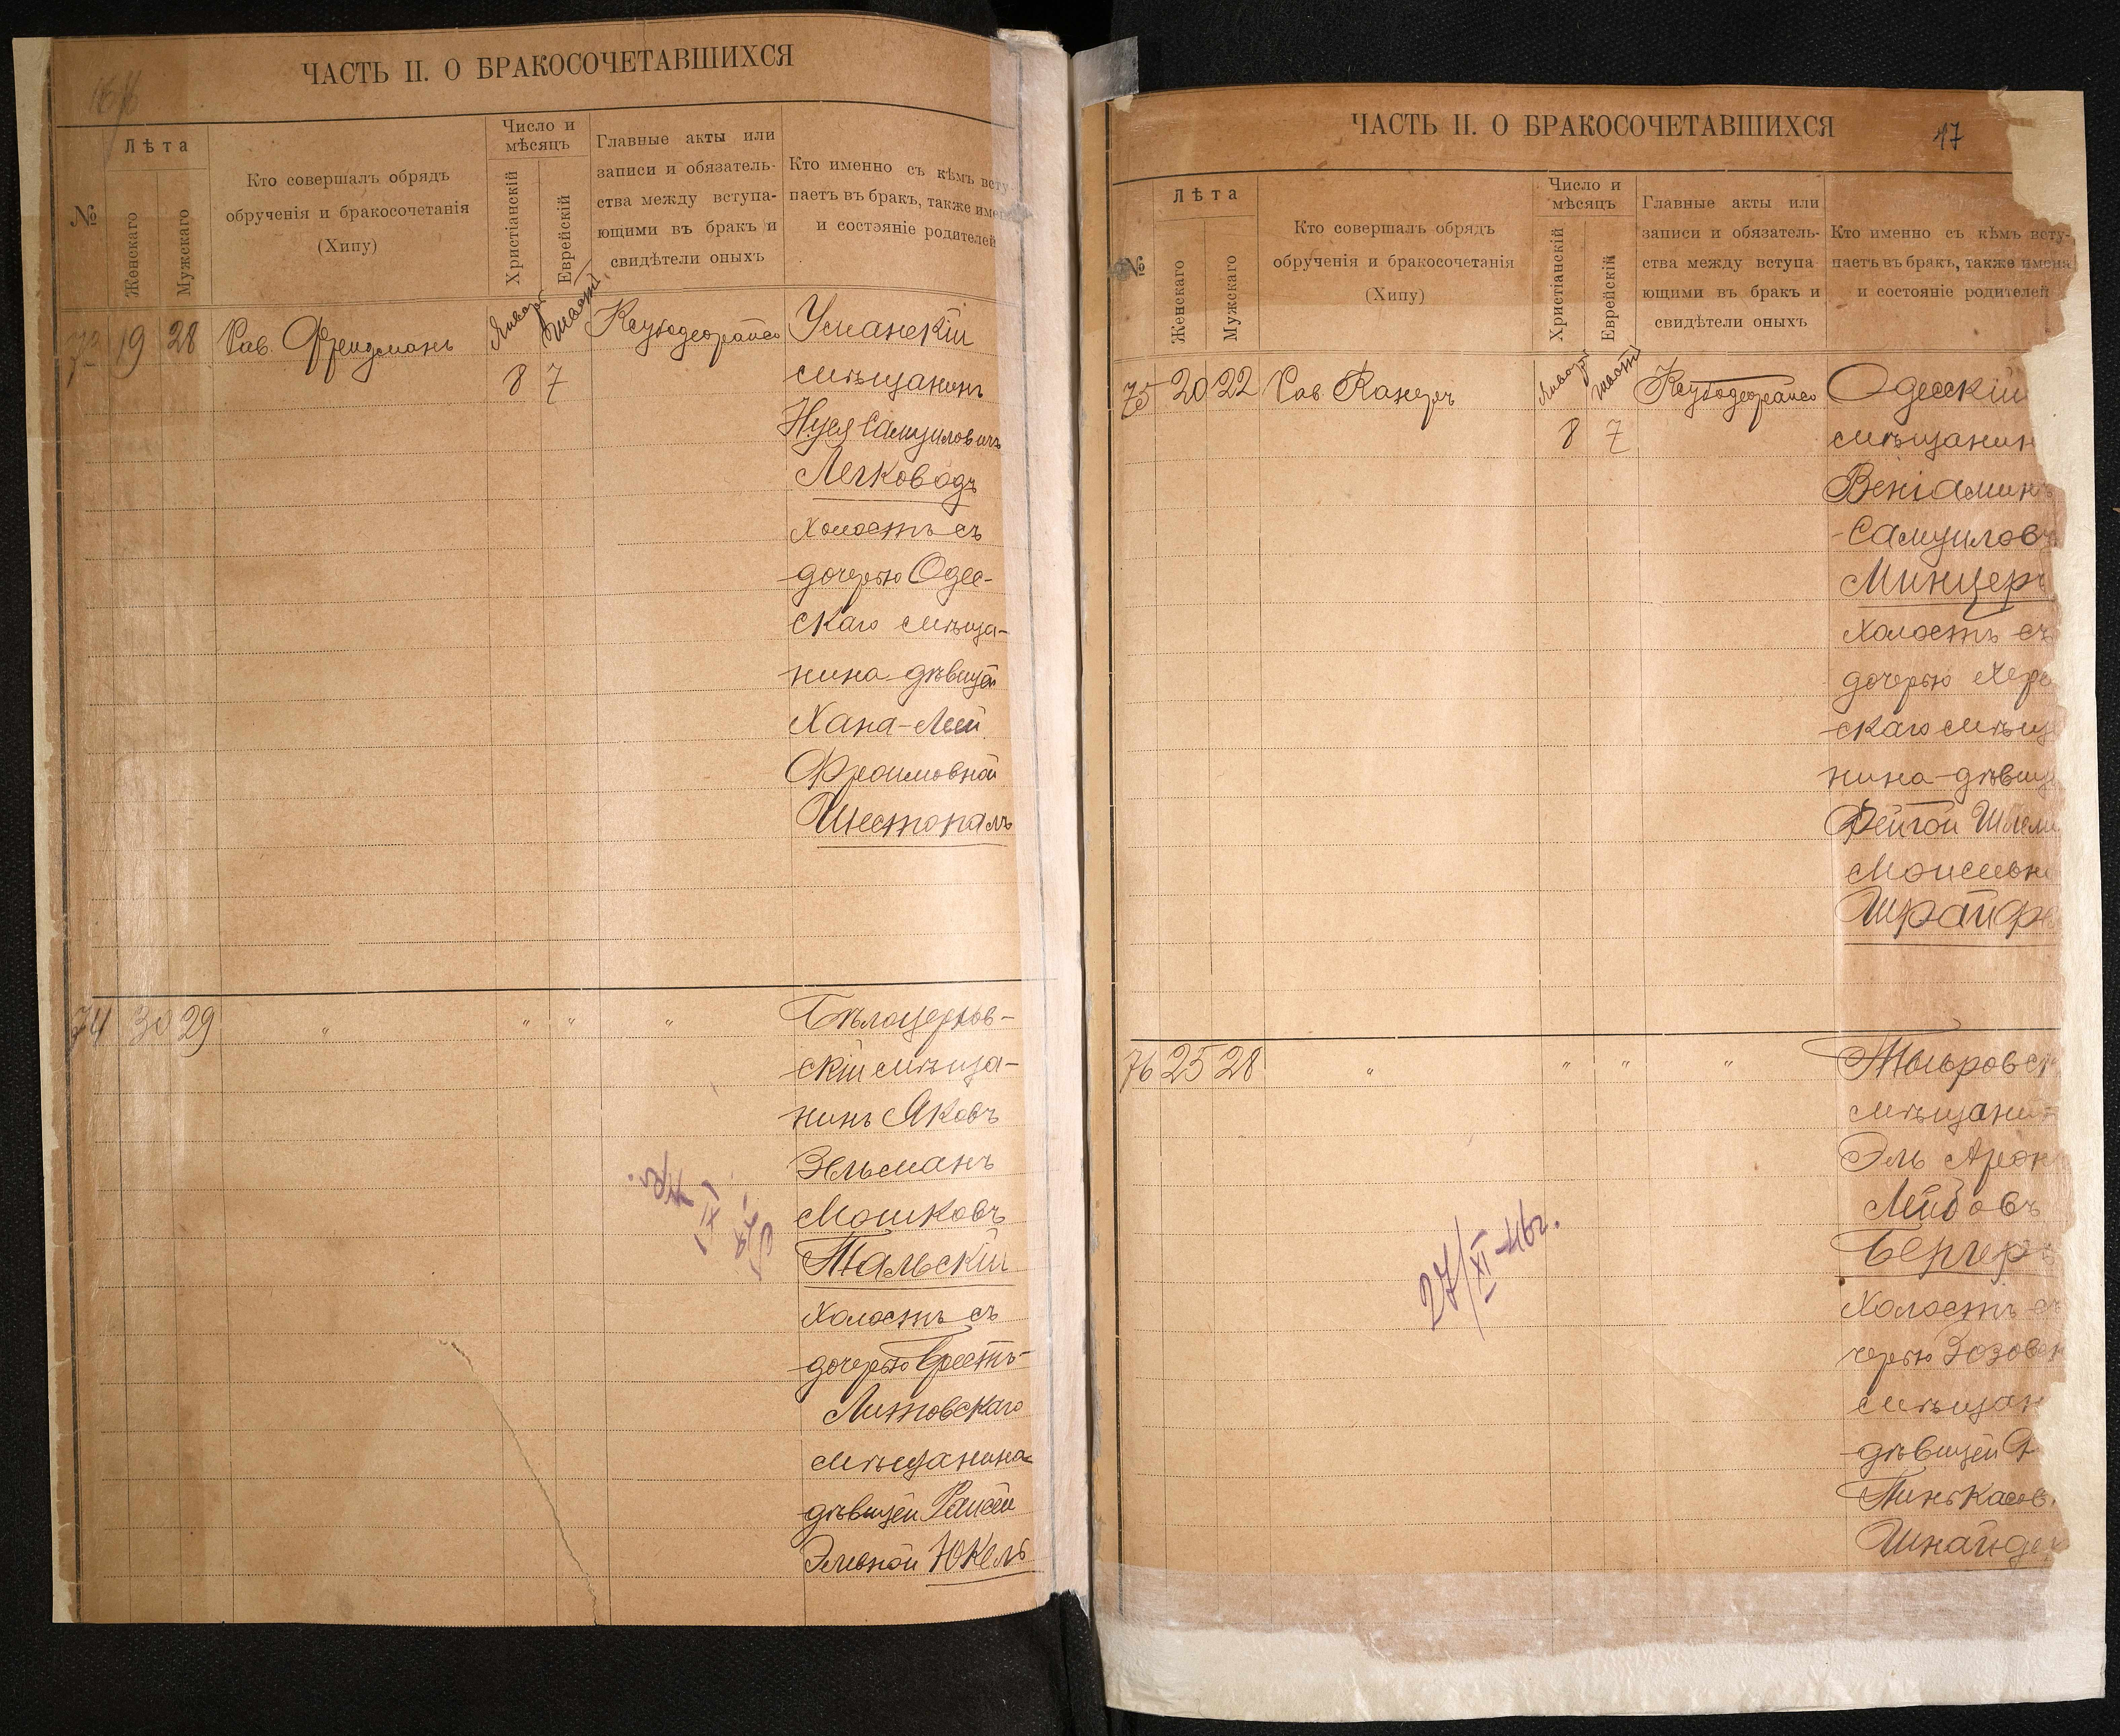 ЧАСТЬ II. О БРАКОСОЧЕТАВШИХСЯ
№
Лѣта
Женскаго
Мужскаго
Кто совершалъ обрядъ
обрученія и бракосочетанія
(Хипу)
Число и
мѣсяцъ
Христіанскій
Еврейскій
Главные акты или
записи и обязатель-
ства между вступа-
ющими въ бракъ и
свидѣтели оныхъ
Кто именно съ кѣмъ всту
паетъ въ бракъ, также имен
и состояніе родителей
73 19 28 Рав. Фрейдманъ
8 7
Уманскій
мѣщанинъ
Нуся Самуиловичъ
Легководъ
холостъ съ
дочерью Одес-
скаго мѣща-
нина-дѣвицей
Хана-Леей
Фроимовной
Шестопалъ
74 30 29 " " " "
Бѣлоцерков-
скій мѣща-
нинъ Яковъ
Зельманъ
Мошковъ
Тальскій
холостъ съ
дочерью Брестъ-
Литовскаго
мѣщанина-
дѣвицей
Элевной Юкель
ЧАСТЬ II. О БРАКОСОЧЕТАВШИХСЯ
17
№
Лѣта
Женскаго
Мужскаго
Кто совершалъ обрядъ
обрученія и бракосочетанія
(Хипу)
Число и
мѣсяцъ
Христіанскій
Еврейскій
Главные акты или
записи и обязатель-
ства между вступа
ющими въ бракъ и
свидѣтели оныхъ
Кто именно съ кѣмъ всту-
паетъ въ бракъ, также имена
и состояніе родителей
75 20 22 Рав. Канеръ
8 7
Одесскій
мѣщанин
Веніаминъ
Самуиловъ
Минцеръ
холостъ съ
дочерью Хер
скаго мѣщ
нина-дѣвиц
Фейгой Шлем
Моисеевн
Шрайф
76 25 28 " " " "
мѣщанин
Эль Арон
Лейбовъ
Бергеръ
холостъ
черью
мѣщан
дѣвицей
Пинькасов
Шнайде
27/XI-46г.